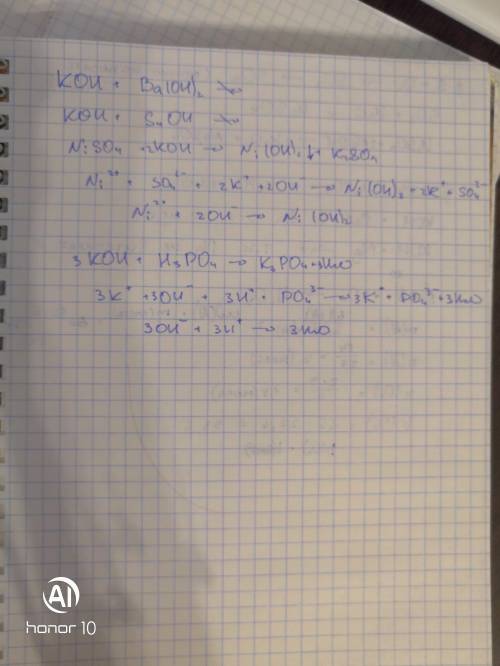 KOH + Ba(OH)₂ ↛
KOH + SnOH ↛
NiSO₄ + 2KOH → Ni(OH)₂↓ + K₂SO₄
Ni²⁺ + SO₄²⁻ + 2K⁺ + 2OH⁻ → Ni(OH)₂ + 2K⁺ + SO₄²⁻
Ni²⁺ + 2OH⁻ → Ni(OH)₂
3KOH + H₃PO₄ → K₃PO₄ + 3H₂O
3K⁺ + 3OH⁻ + 3H⁺ + PO₄³⁻ → 3K⁺ + PO₄³⁻ + 3H₂O
3OH⁻ + 3H⁺ → 3H₂O
AI
honor 10